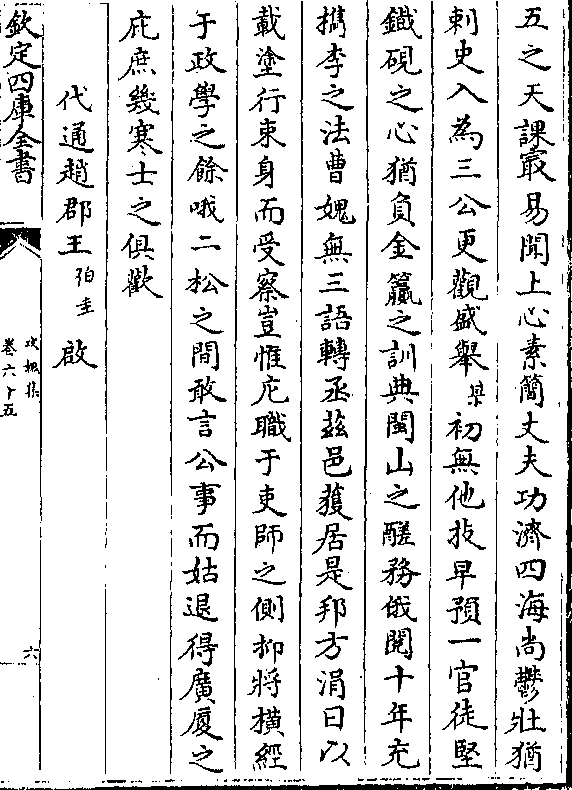 五之天課最易聞上心素簡丈夫功濟四海尚鬱壯猶
刺史入為三公更觀盛舉某初無他技早預一官徒堅
鐡硯之心猶負金籯之訓典閩山之醝務俄閲十年充
檇李之法曹媿無三語轉丞茲邑獲居是邦方涓日以
載塗行束身而受察豈惟庀職于吏師之側抑將橫經
于政學之餘哦二松之間敢言公事而姑退得廣厦之
庇庶幾寒士之俱歡
代通趙郡王伯圭啟
欽定四庫全書
攻媿集
卷六十五
六